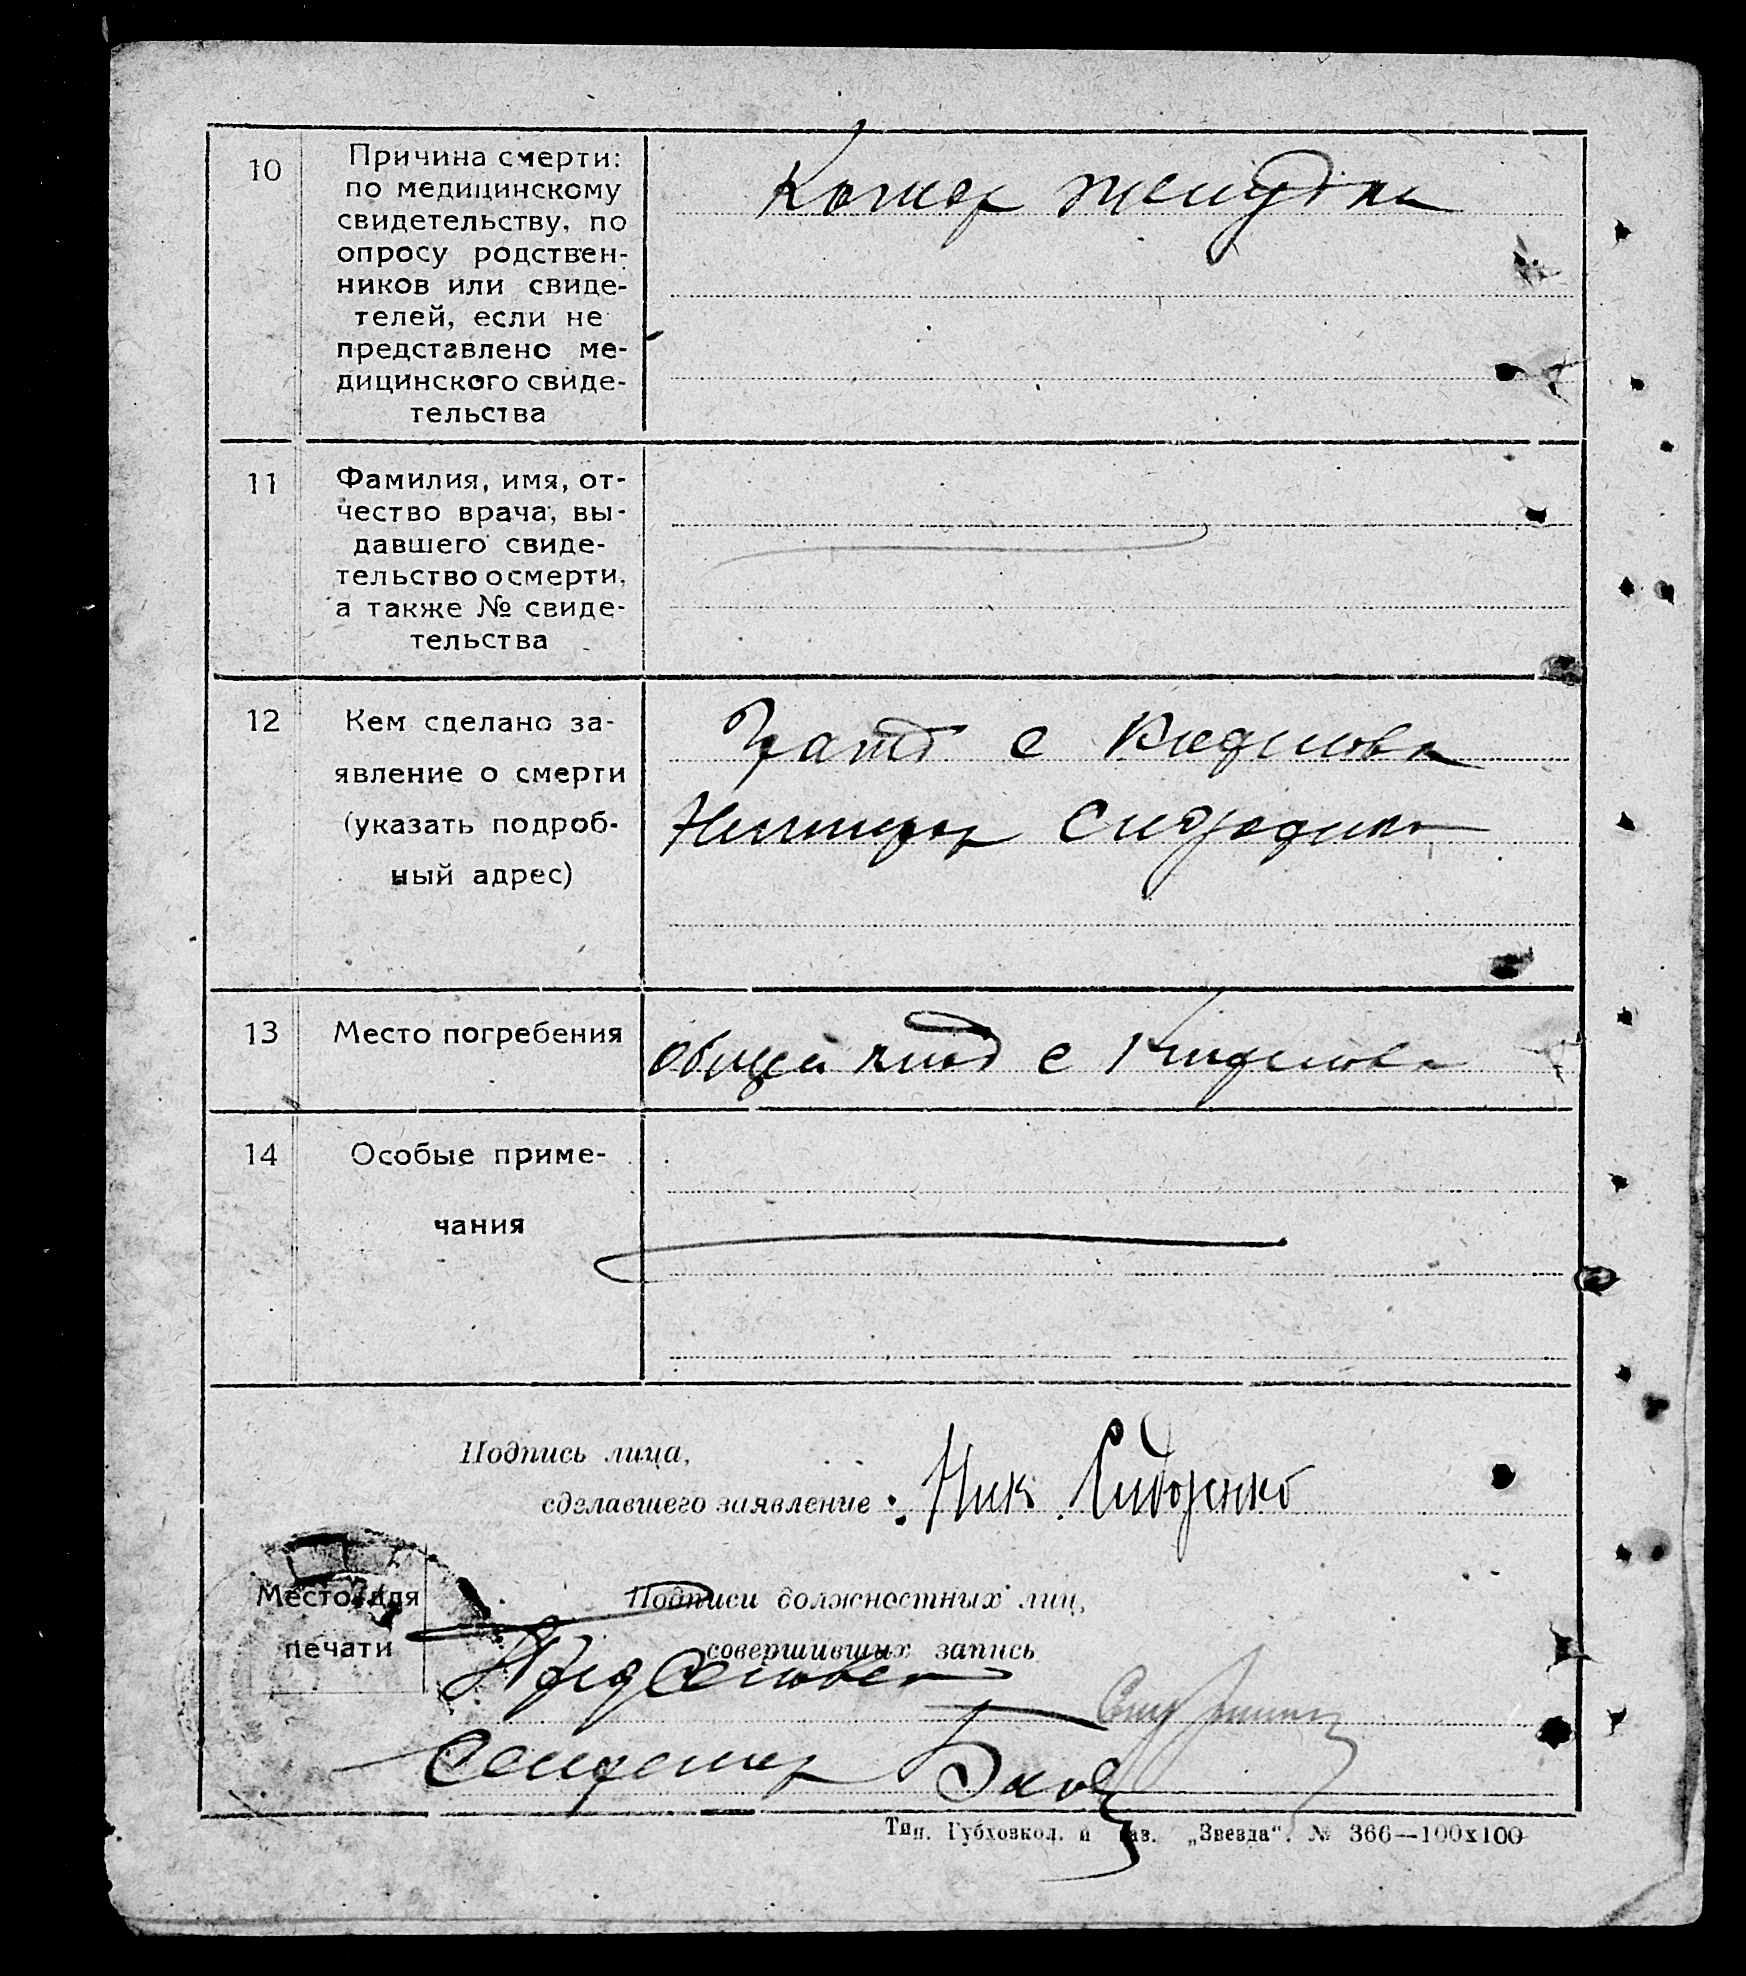 10
Причина смерти:
по медицинскому
свидетельству, по
опросу родствен-
ников или свиде-
телей, если не
представлено ме-
дицинского свиде-
тельства
Катар желудка
11
Фамилия, имя, от-
чество врача, вы-
давшего свиде-
тельство о смерти,
а также № свиде-
тельства
12
Кем сделано за-
явление о смерти
(указать подроб-
ный адрес)
с
13
Место погребения
общ клад с
14
Особые приме-
чания
Подпись лица,
сделавшего заявление
Ник. Сидоренко
Место для
печати
Подписи должностных лиц,
совершивших запись
Пред Сельсовета
Секретарь
Тип. Губхозкол. и газ. „Звезда“. № 366—100х100